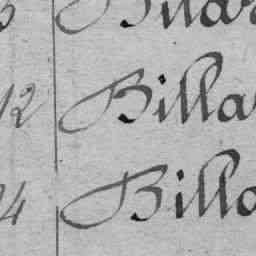 Bilar
12 Billa
4 Billa